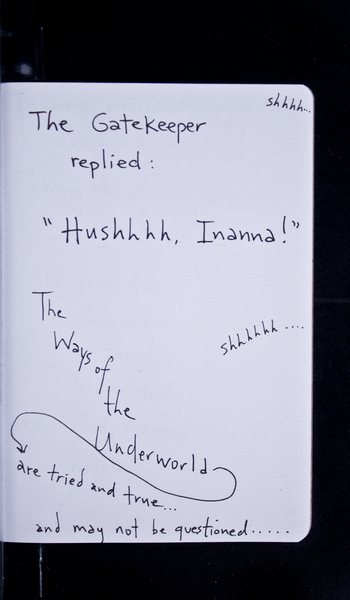 shhhh...
The Gatekeeper
replied:
"Hushhhh, Inanna!"
The
Ways of
the
Underworld
shhhhhh ....
are tried and true...
and may not be questioned.....